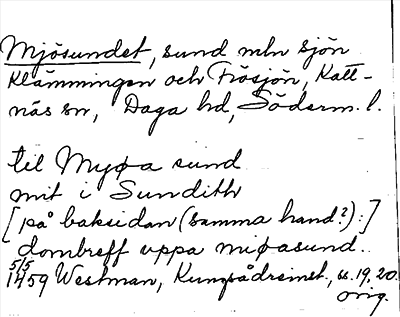 Mjösundet, sund mln sjön
Klämmingen och Frösjön, Katt-
näs sn, Daga hd, Söderm. l.
til Myøa sund
mit i Sundith
[på baksidan (samma hand?):]
dombreff uppa miøasund..
5/5 1459 Westman, Kungsådreinst., ss. 19, 20.
orig.